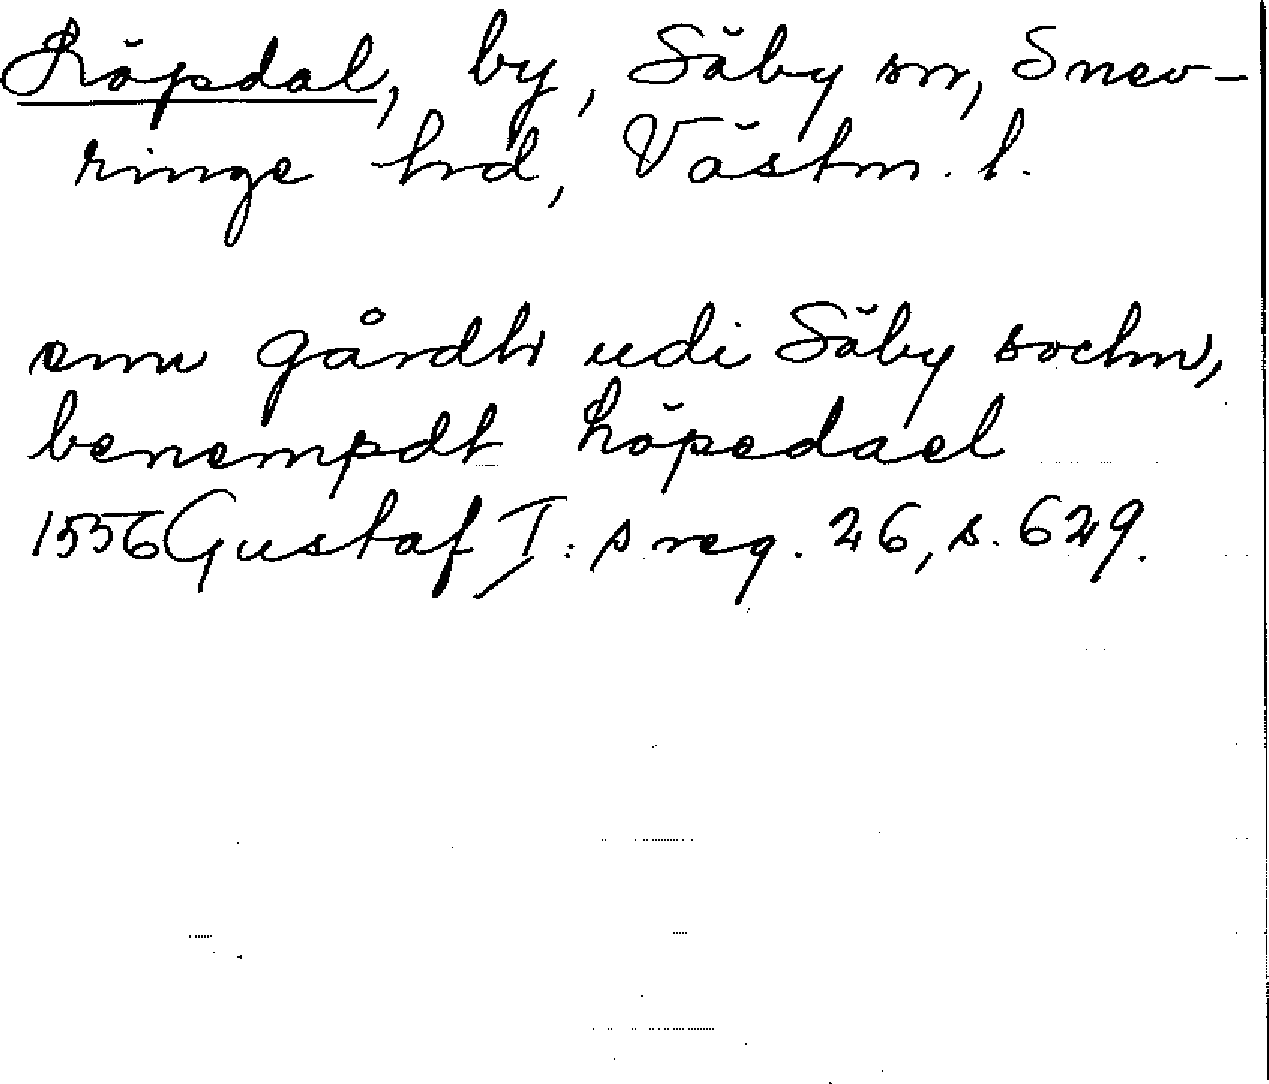 Köpdal, by, Säby sn, Snev-
ringe hd, Västm. l.
enn gårdh udi Säby sochn,
benempdt köpedael
1556 Gustaf I:s reg. 26, s. 629.